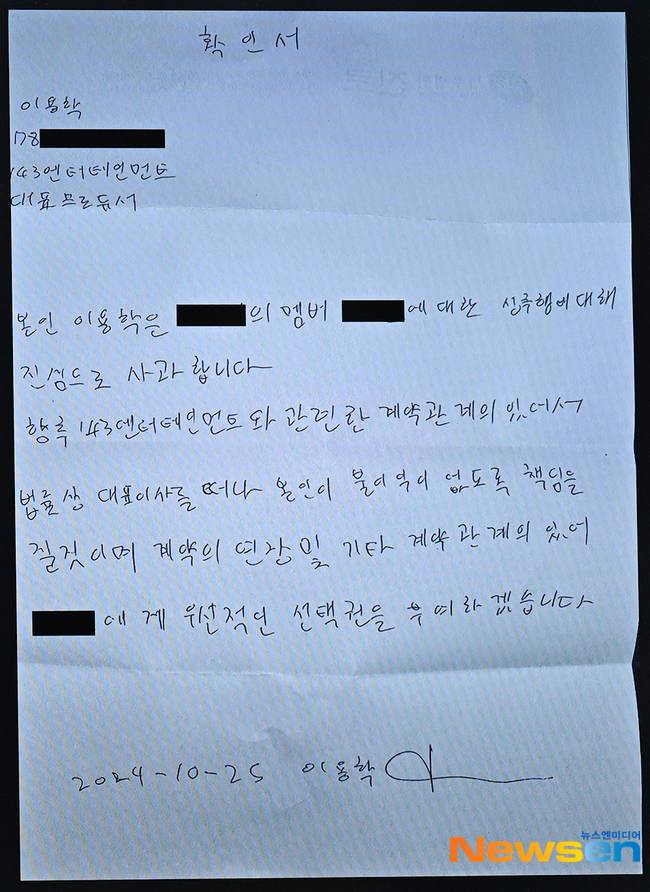 확인서
이용학
178
143엔터테인먼트
대표프로듀서
본인 이용학은 의 멤버 에 대한 성추행에 대해
진심으로 사과합니다
향후 143엔터테인먼트와 관련한 계약관계의 있어서
법률상 대표이사를 떠나 본인이 불이익이 없도록 책임을
질것이며 계약의 연장 및 기타 계약관계의 있어
에게 우선적인 선택권을 부여하겠습니다
2024-10-25 이용학
뉴스엔미디어
Newsen